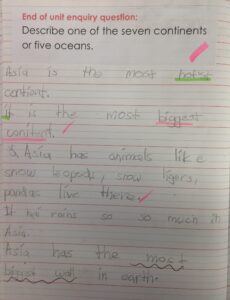 End of unit enquiry question:
Describe one of the seven continents
or five oceans.
Asia is the most
contient.
it is the most biggest
Asia has animals like
snow leopods, snow tigers,
pandas live there
It rains so so much in
Asia.
Asia has the most
bigest wall in earth.